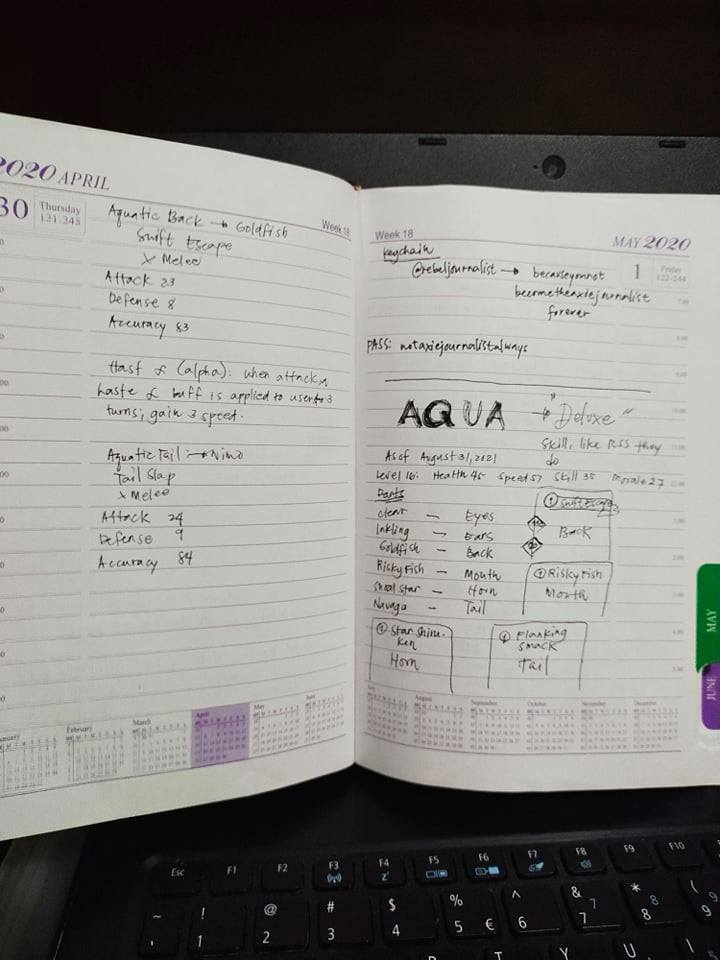 2020 APRIL
30
Thursday
121-245
Week 18
Aquatic Back → Goldfish
Swift Escape
x Melee
Attack 23
Defense 8
Accuracy 83
turns, gain 3 speed.
Aquatic Tail → Nimo
Tail Slap
x Melee
Attack 24
Defense 9
Accuracy 84
January
February
March
April
May
June
Week 18
MAY 2020
1
Friday
122-244
keychain
@rebeljournalist →
becometheaxiejournalist
forever
PASS: notaxiejournalistalways
AQUA → "Deluxe"
Skill, like RSS they
do
As of August 31, 2021
Level 16: Health 45 Speed 57 Skill 35 Morale 27
Parts
Clear — Eyes
Inkling — Ears
Goldfish — Back
Risky Fish — Mouth
Shoal Star — Horn
Navaga — Tail
Swift Escape
Back
Risky Fish
Mouth
Star Shuri-
ken
Horn
Flanking
Smack
Tail
July
August
September
October
November
December
MAY
JUNE
Esc F1 F2 F3 F4 F5 F6 F7 F8 F9 F10
~ ! @ # $ % ^ & * (
1 2 3 4 5 € 6 7 7 8 8 9 9
T Y U I